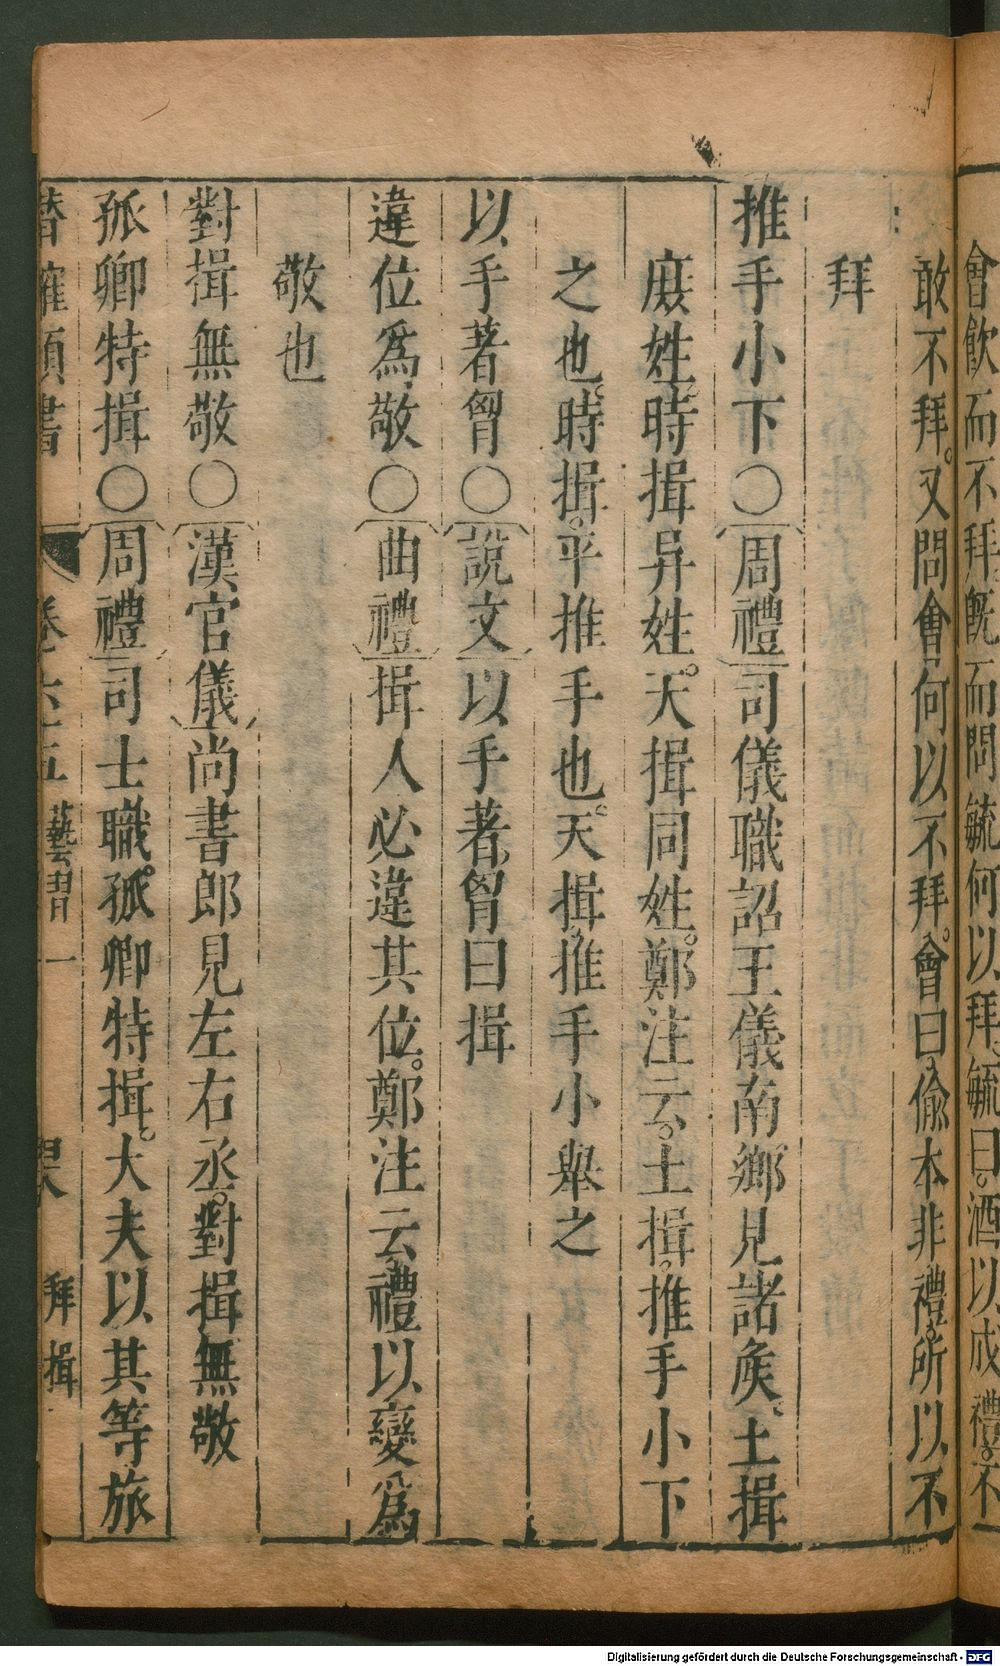 會飲而不拜既而問毓何以拜毓曰酒以成禮不
敢不拜又問會何以不拜會曰偷本非禮所以不
拜
推手小下○周禮司儀職詔王儀南鄉見諸侯土揖
庶姓時揖异姓天揖同姓鄭注云土揖推手小下
之也時揖平推手也天揖推手小舉之
以手著胷○說文以手著胷曰揖
違位爲敬○曲禮揖人必違其位鄭注云禮以變爲
敬也
對揖無敬○漢官儀尚書郎見左右丞對揖無敬
孤卿特揖○周禮司士職孤卿特揖大夫以其等旅
潛確類書 卷之六十五 藝習一 拜揖
Digitalisierung gefördert durch die Deutsche Forschungsgemeinschaft - DFG